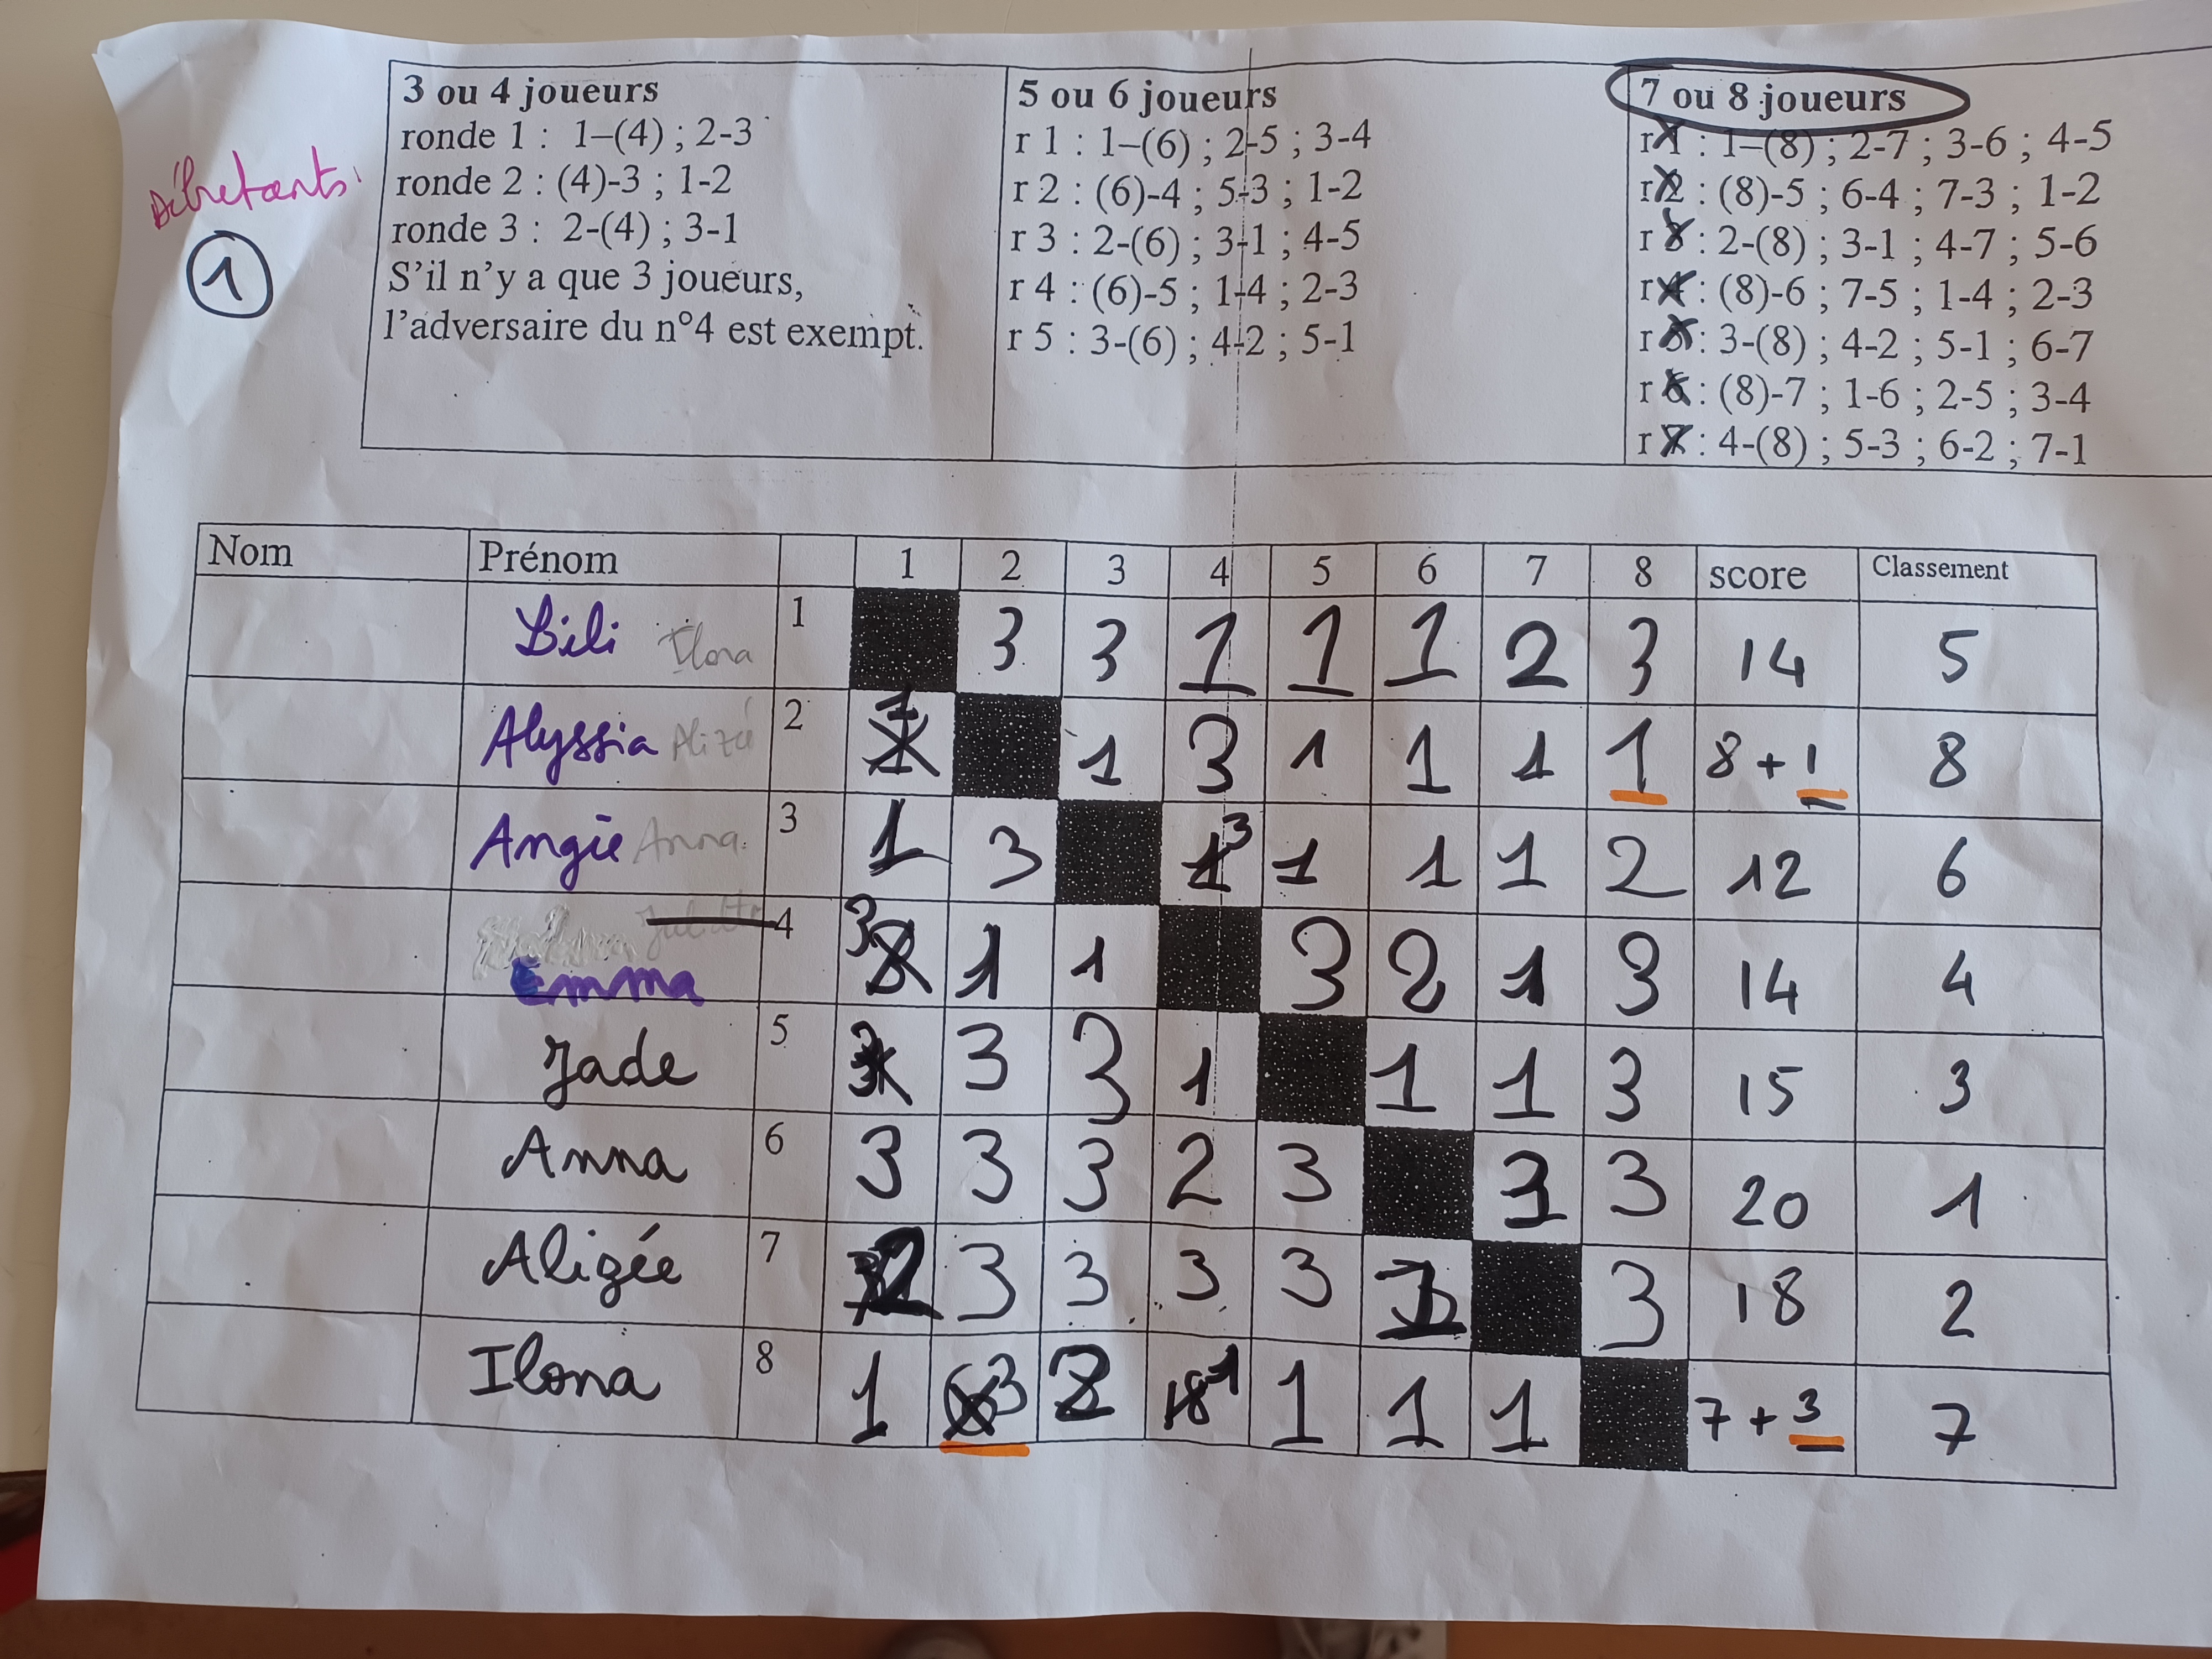 3 ou 4 joueurs
ronde 1 : 1–(4) ; 2-3
ronde 2 : (4)-3 ; 1-2
ronde 3 : 2-(4) ; 3-1
S'il n'y a que 3 joueurs,
l'adversaire du n°4 est exempt.
5 ou 6 joueurs
r 1 : 1–(6) ; 2-5 ; 3-4
r 2 : (6)-4 ; 5-3 ; 1-2
r 3 : 2-(6) ; 3-1 ; 4-5
r 4 : (6)-5 ; 1-4 ; 2-3
r 5 : 3-(6) ; 4-2 ; 5-1
7 ou 8 joueurs
r 1 : 1–(8) ; 2-7 ; 3-6 ; 4-5
r 2 : (8)-5 ; 6-4 ; 7-3 ; 1-2
r 3 : 2-(8) ; 3-1 ; 4-7 ; 5-6
r 4 : (8)-6 ; 7-5 ; 1-4 ; 2-3
r 5 : 3-(8) ; 4-2 ; 5-1 ; 6-7
r 6 : (8)-7 ; 1-6 ; 2-5 ; 3-4
r 7 : 4-(8) ; 5-3 ; 6-2 ; 7-1
Débutants
1
Nom Prénom 1 2 3 4 5 6 7 8 score Classement
Lili Ilona 1 3 3 1 1 1 2 3 14 5
Alyssia Alizé 2 1 1 3 1 1 1 1 8 + 1 8
Angie Anna 3 1 3 3 1 1 1 2 12 6
Emma 4 3 1 1 3 2 1 3 14 4
Jade 5 3 3 3 1 1 1 3 15 3
Anna 6 3 3 3 2 3 3 3 20 1
Aligée 7 2 3 3 3 3 1 3 18 2
Ilona 8 1 3 2 1 1 1 1 7 + 3 7